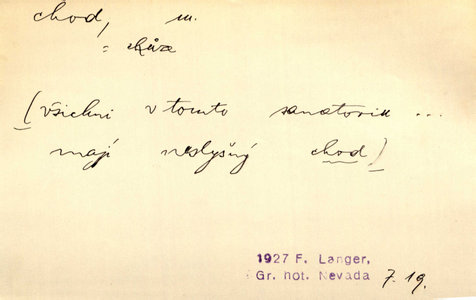 chod, m.
= chůze
(všichni v tomto sanatoriu ...
mají neslyšný chod)
1927 F. Langer,
Gr. hot. Nevada 7.19.